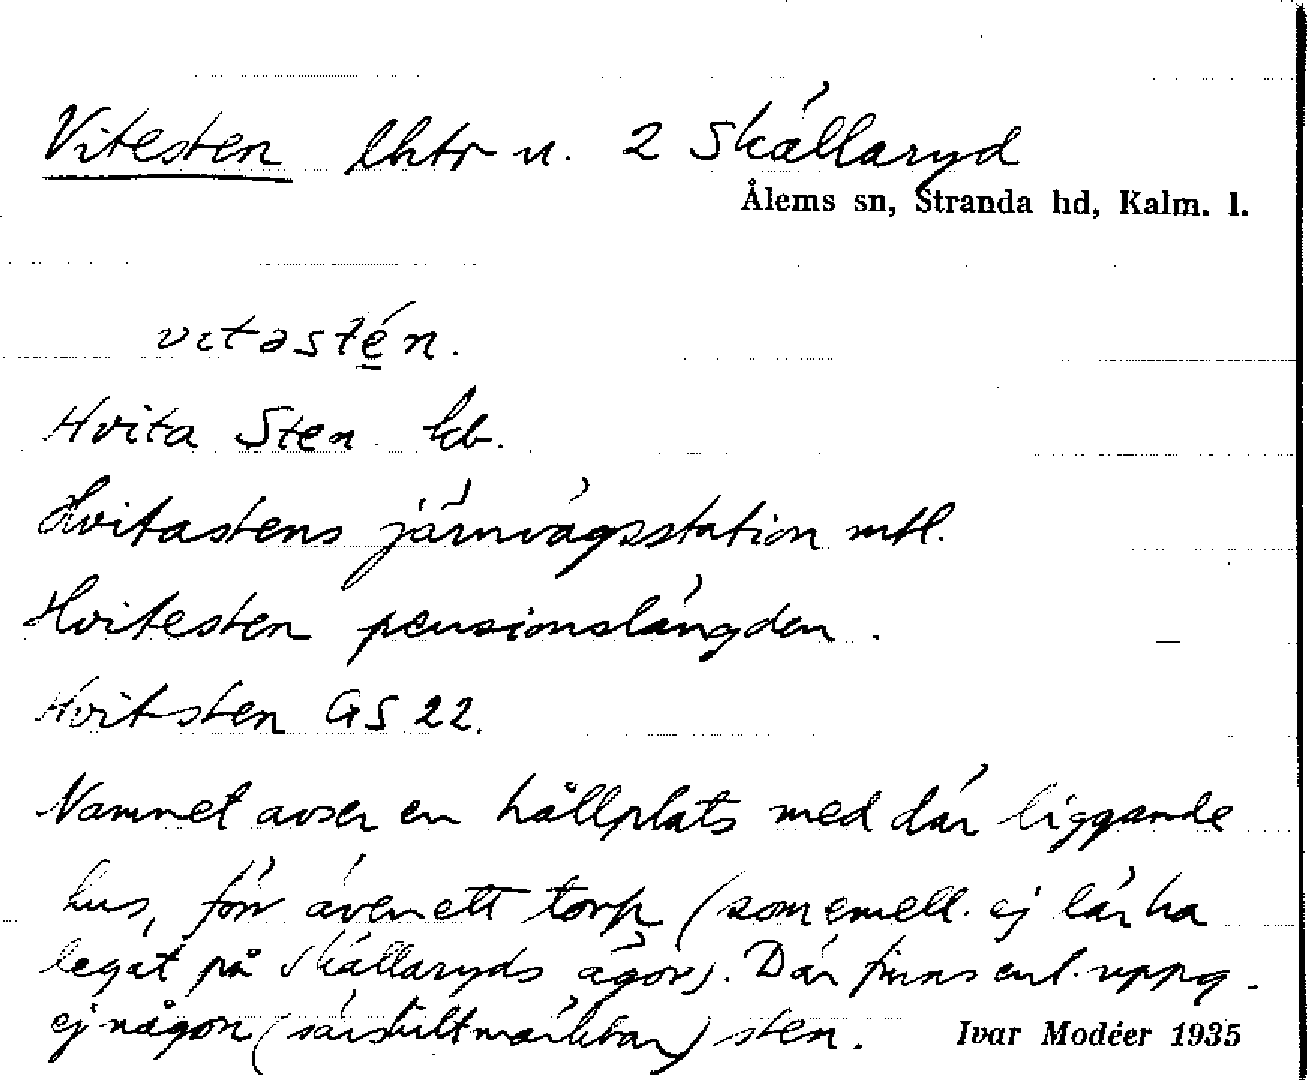 Vitesten lhtr u. 2 Skällaryd
Ålems sn, Stranda hd, Kalm. l.
vitəstén.
Hvita Sten kb.
Hvitastens järnvägsstation mtl.
Hvitesten pensionslängden.
Hvitsten GS 22.
Namnet avser en hållplats med där liggande
hus, förr även ett torp (som emell. ej lär ha
legat på Skällaryds ägor). Där finns enl. uppg.
ej någon (särskilt märkbar) sten.
Ivar Modéer 1935